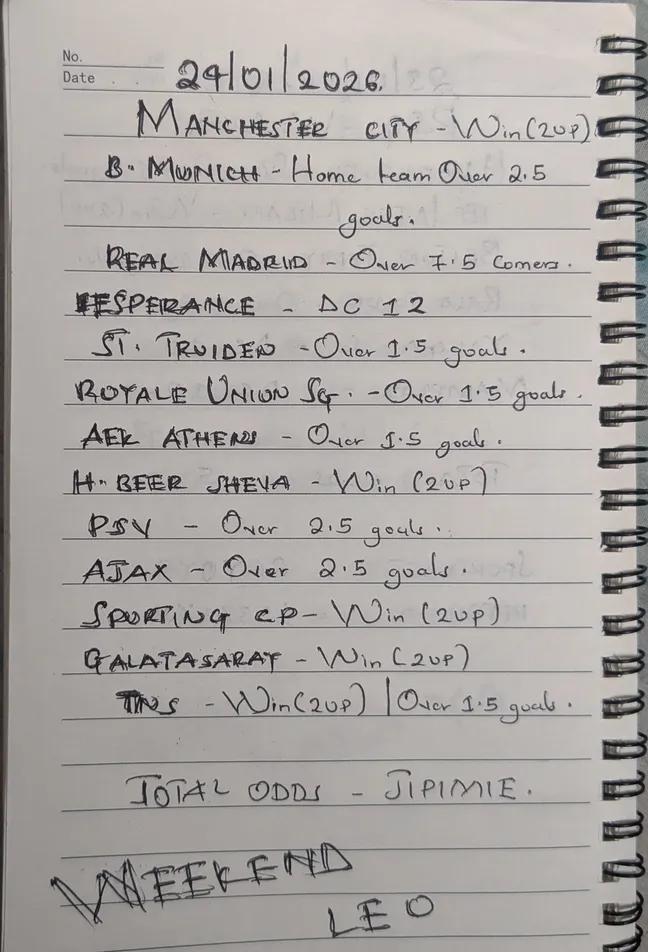 No.
Date
24/01/2026.
MANCHESTER CITY - Win (2UP)
B. MUNICH - Home team Over 2.5
goals.
REAL MADRID - Over 7.5 Corners.
ESPERANCE - DC 12
ST. TRUIDEN - Over 1.5 goals.
ROYALE UNION SG. - Over 1.5 goals.
AEK ATHENS - Over 1.5 goals.
H. BEER SHEVA - Win (2UP)
PSV - Over 2.5 goals.
AJAX - Over 2.5 goals.
SPORTING CP - Win (2UP)
GALATASARAY - Win (2UP)
TNS - Win (2UP) | Over 1.5 goals.
TOTAL ODDS - JIPIMIE.
WEEKEND
LEO